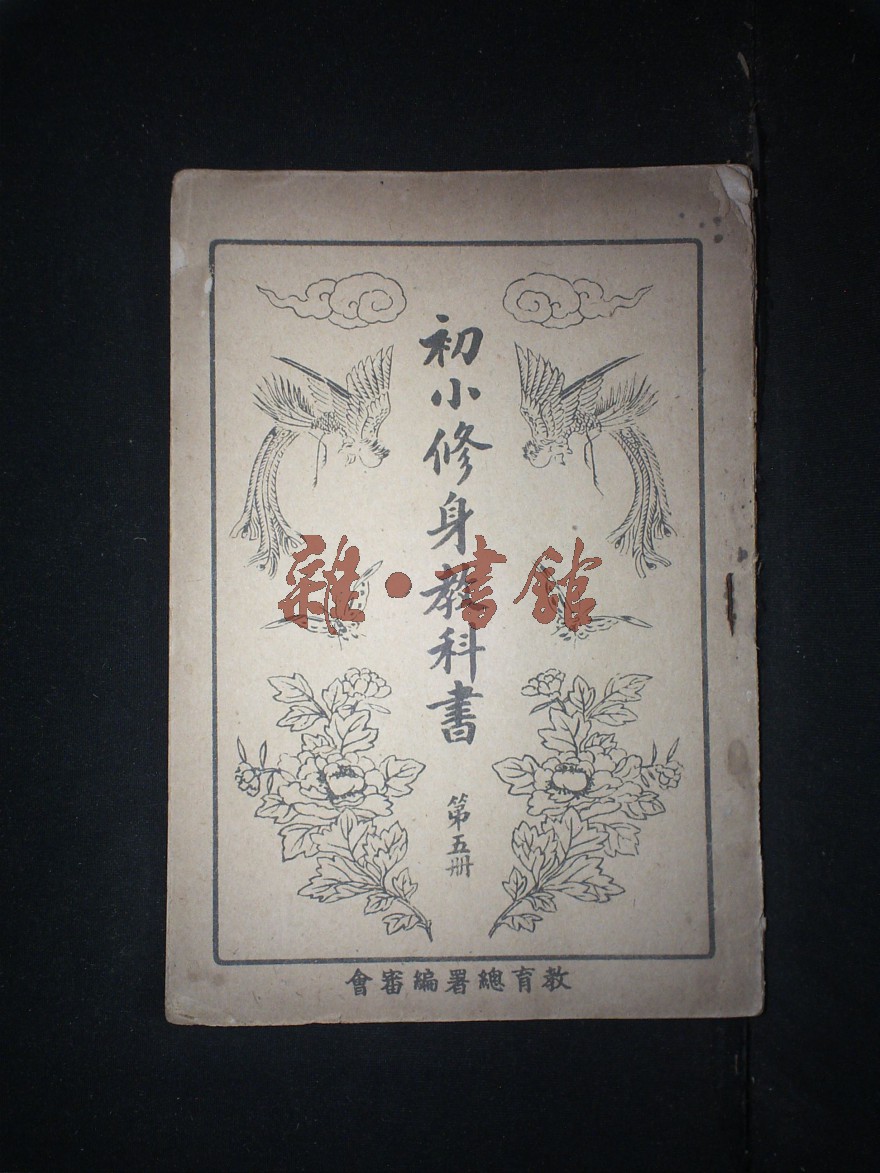 初小修身教科書
第五册
教育總署編審會
雜·書館